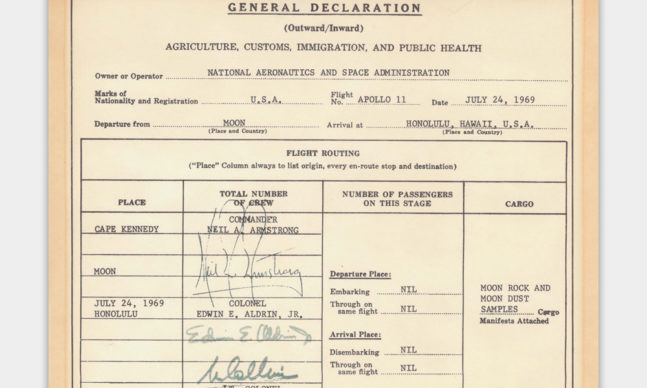 GENERAL DECLARATION
(Outward/Inward)
AGRICULTURE, CUSTOMS, IMMIGRATION, AND PUBLIC HEALTH
Owner or Operator NATIONAL AERONAUTICS AND SPACE ADMINISTRATION
Marks of
Nationality and Registration U.S.A. Flight
No. APOLLO 11 Date JULY 24, 1969
Departure from MOON Arrival at HONOLULU, HAWAII, U.S.A.
(Place and Country) (Place and Country)
FLIGHT ROUTING
("Place" Column always to list origin, every en-route stop and destination)
PLACE
TOTAL NUMBER
OF CREW
NUMBER OF PASSENGERS
ON THIS STAGE
CARGO
CAPE KENNEDY
COMMANDER
NEIL A. ARMSTRONG
Neil A. Armstrong
MOON
Departure Place:
Embarking NIL
Through on
same flight NIL
MOON ROCK AND
MOON DUST
SAMPLES Cargo
Manifests Attached
JULY 24, 1969
HONOLULU
COLONEL
EDWIN E. ALDRIN, JR.
Edwin E. Aldrin
Arrival Place:
Disembarking NIL
Through on
same flight NIL
M Collins
LT. COLONEL